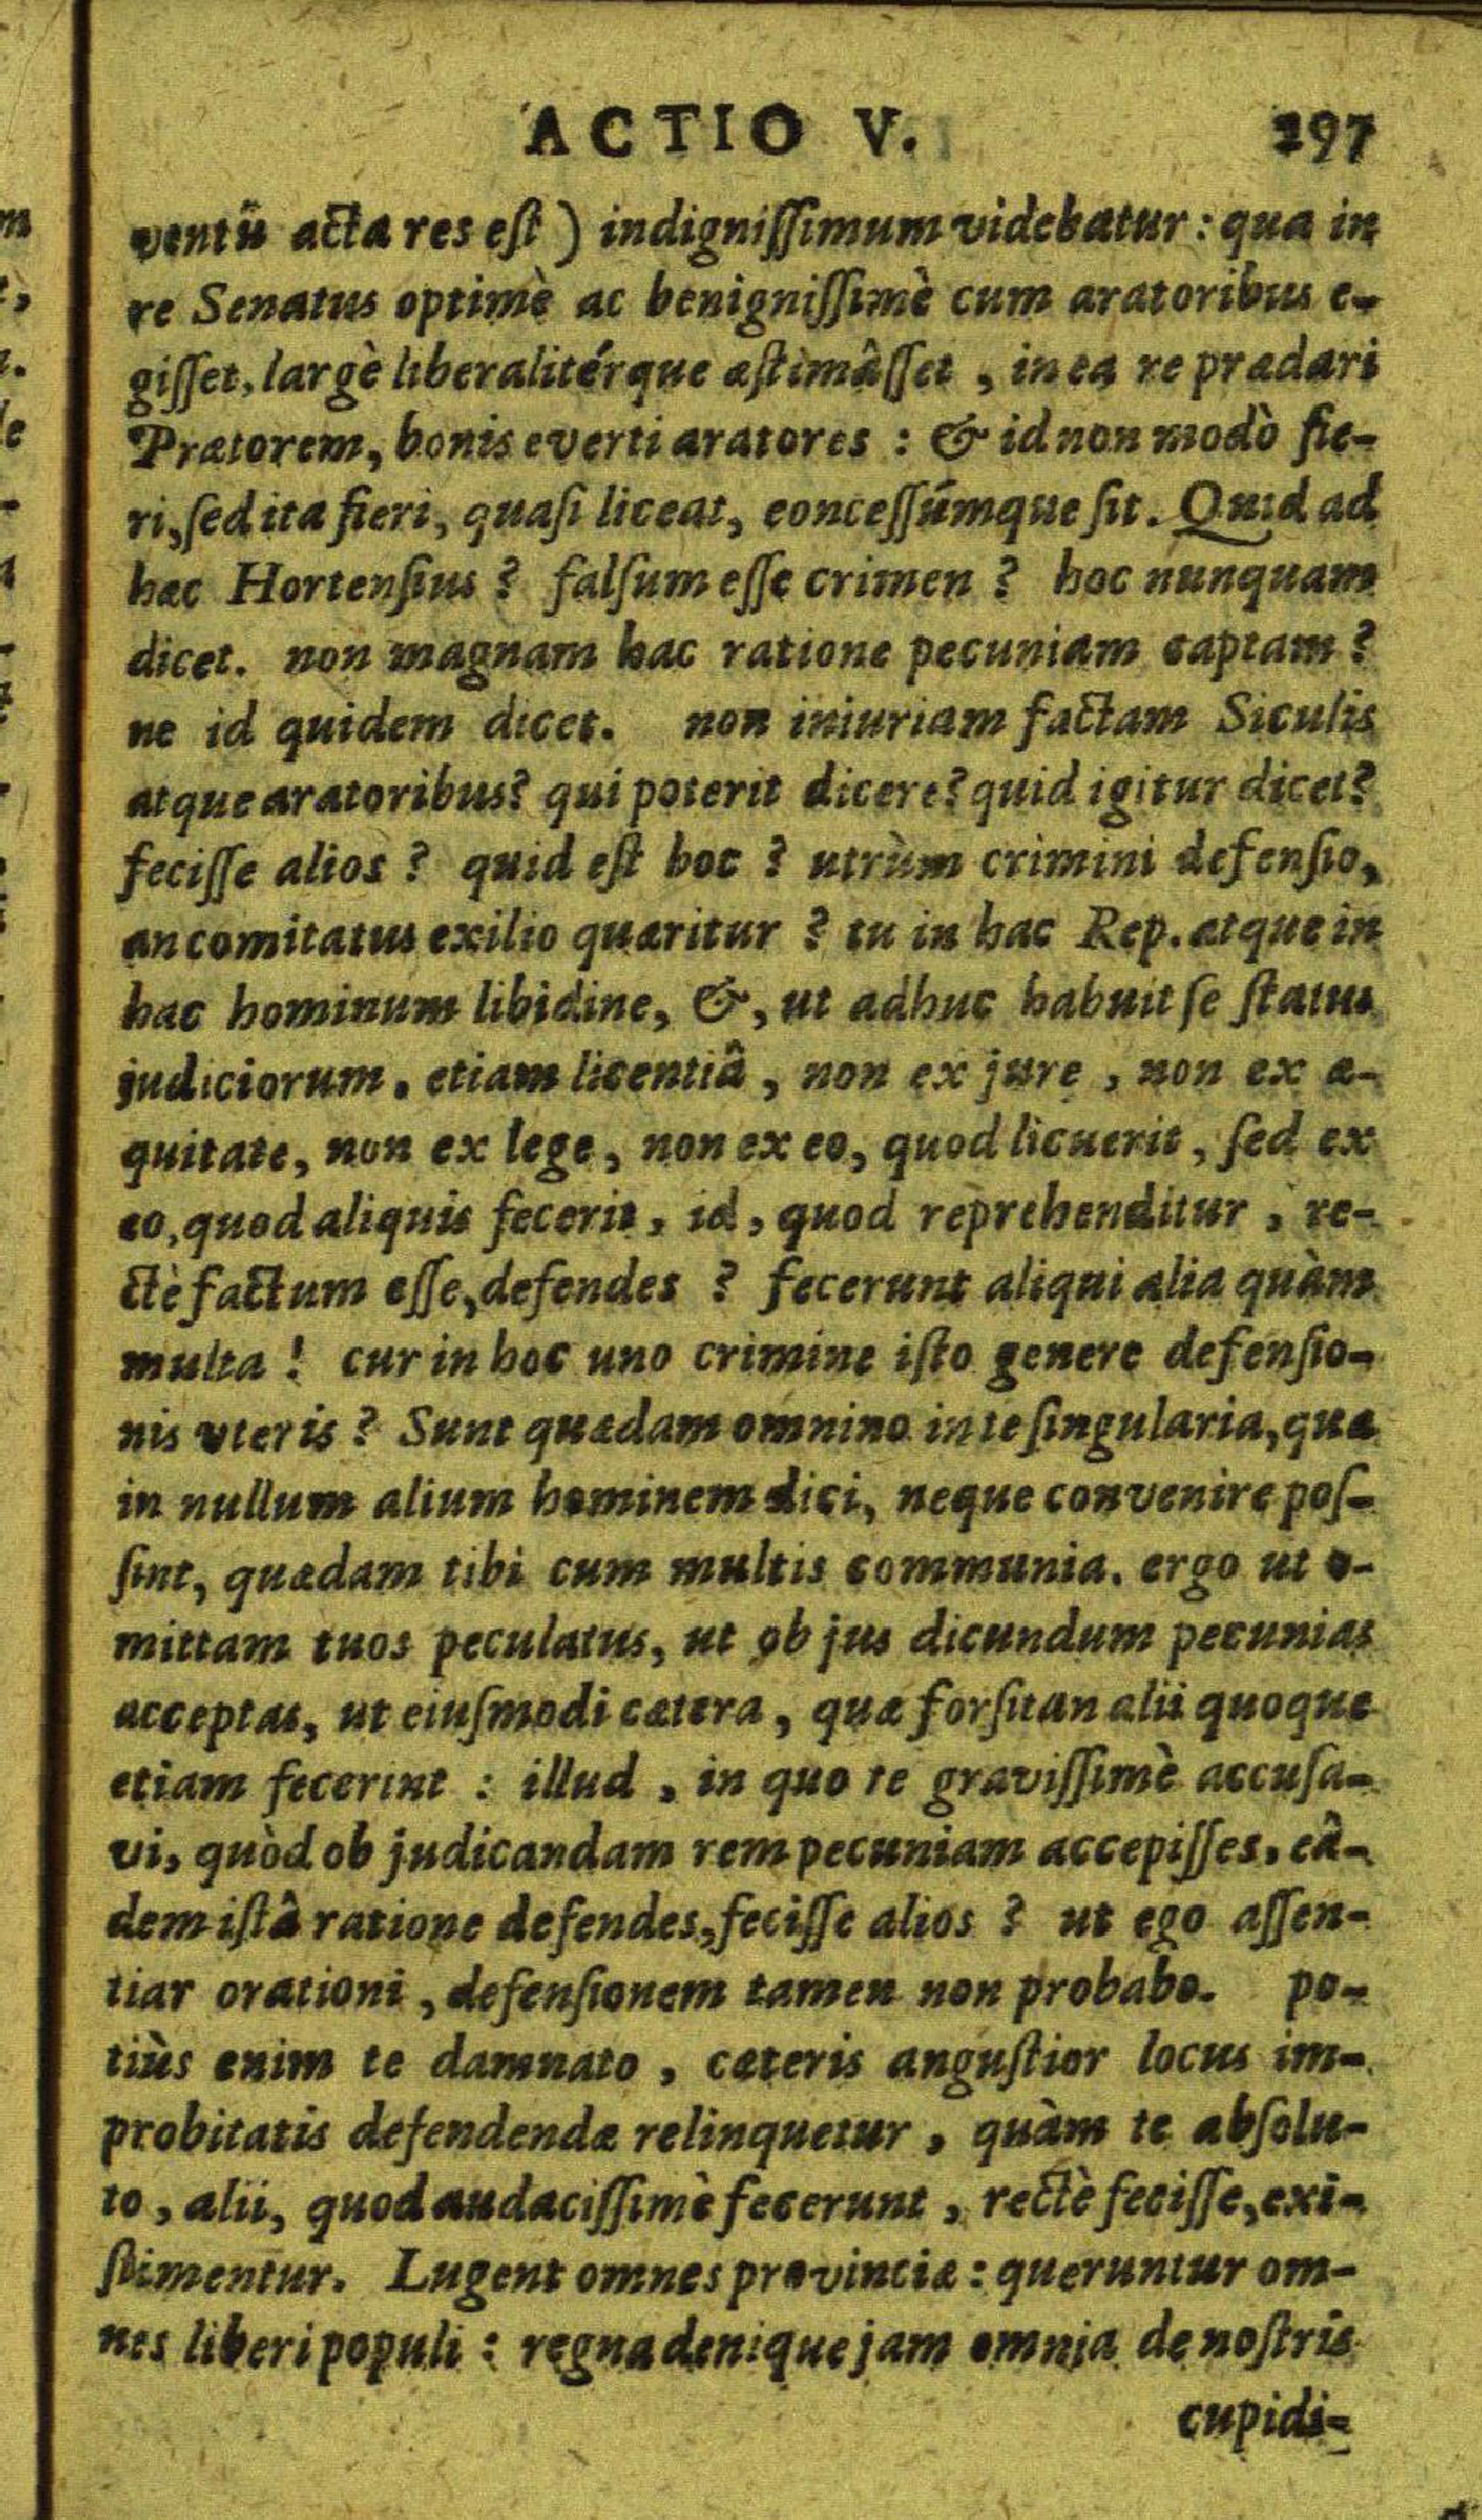 ACTIO V. 297
ventũ acta res eſt ) indigniſſimum videbatur : qua in
re Senatus optimè ac benigniſſimè cum aratoribus e-
giſſet, largè liberalitérque æſtimâſſet , in ea re prædari
Prætorem, bonis everti aratores : & id non modò fie-
ri, ſed ita fieri, quaſi liceat, eonceſſúmque ſit. Quid ad
hæc Hortenſius ? falſum eſſe crimen ? hoc nunquam
dicet. non magnam hac ratione pecuniam captam ?
ne id quidem dicet. non iniuriam factam Siculis
atque aratoribus? qui poterit dicere? quid igitur dicet?
feciſſe alios ? quid eſt hoc ? utrùm crimini defenſio,
an comitatus exilio quæritur ? tu in hac Rep. atque in
hac hominum libidine, &, ut adhuc habuit ſe ſtatus
judiciorum, etiam licentiâ , non ex jure , non ex æ-
quitate, non ex lege, non ex eo, quod licuerit, ſed ex
eo, quod aliquis fecerit, id, quod reprehenditur , re-
ctè factum eſſe, defendes ? fecerunt aliqui alia quàm
multa ! cur in hoc uno crimine iſto genere defenſio-
nis vteris ? Sunt quædam omnino in te ſingularia, quæ
in nullum alium hominem dici, neque convenire poſ-
ſint, quædam tibi cum multis communia. ergo ut o-
mittam tuos peculatus, ut ob jus dicundum pecunias
acceptas, ut eiuſmodi cætera, quæ forſitan alii quoque
etiam fecerint : illud , in quo te graviſſimè accuſa-
vi, quòd ob judicandam rem pecuniam accepiſſes, eâ-
dem iſtâ ratione defendes, feciſſe alios ? ut ego aſſen-
tiar orationi, defenſionem tamen non probabo. po-
tiùs enim te damnato , cæteris anguſtior locus im-
probitatis defendendæ relinquetur , quàm te abſolu-
to , alii, quod audaciſſimè fecerunt , rectè feciſſe, exi-
ſtimentur. Lugent omnes provinciæ : queruntur om-
nes liberi populi : regna denique jam omnia de noſtris
cupidi-